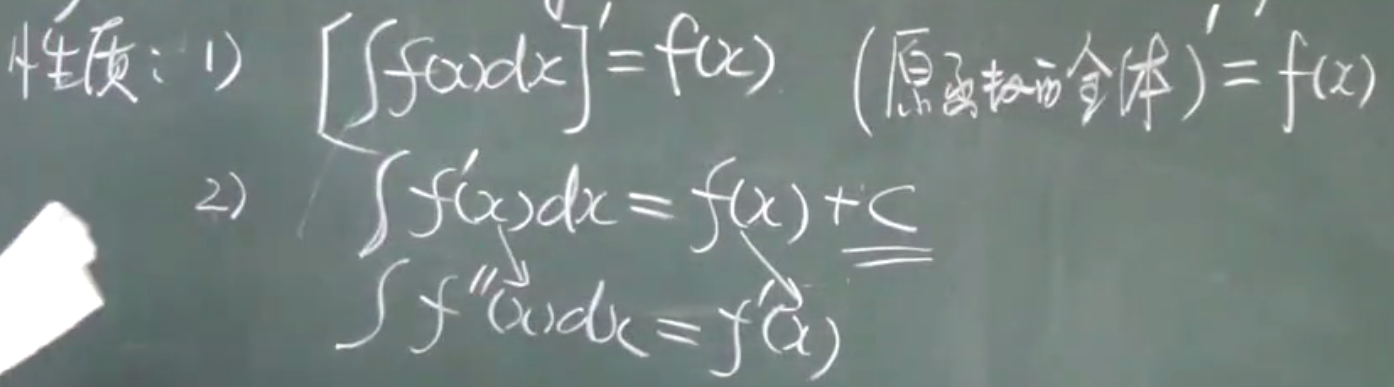 性质：1） [∫f(x)dx]′=f(x) （原函数的全体）′=f(x)
2） ∫f′(x)dx=f(x)+C
∫f″(x)dx=f′(x)